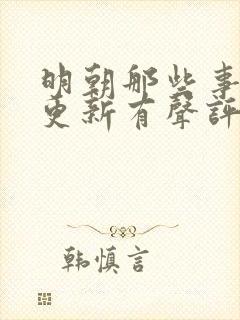 明朝那些事
更新有聲評
韩慎言